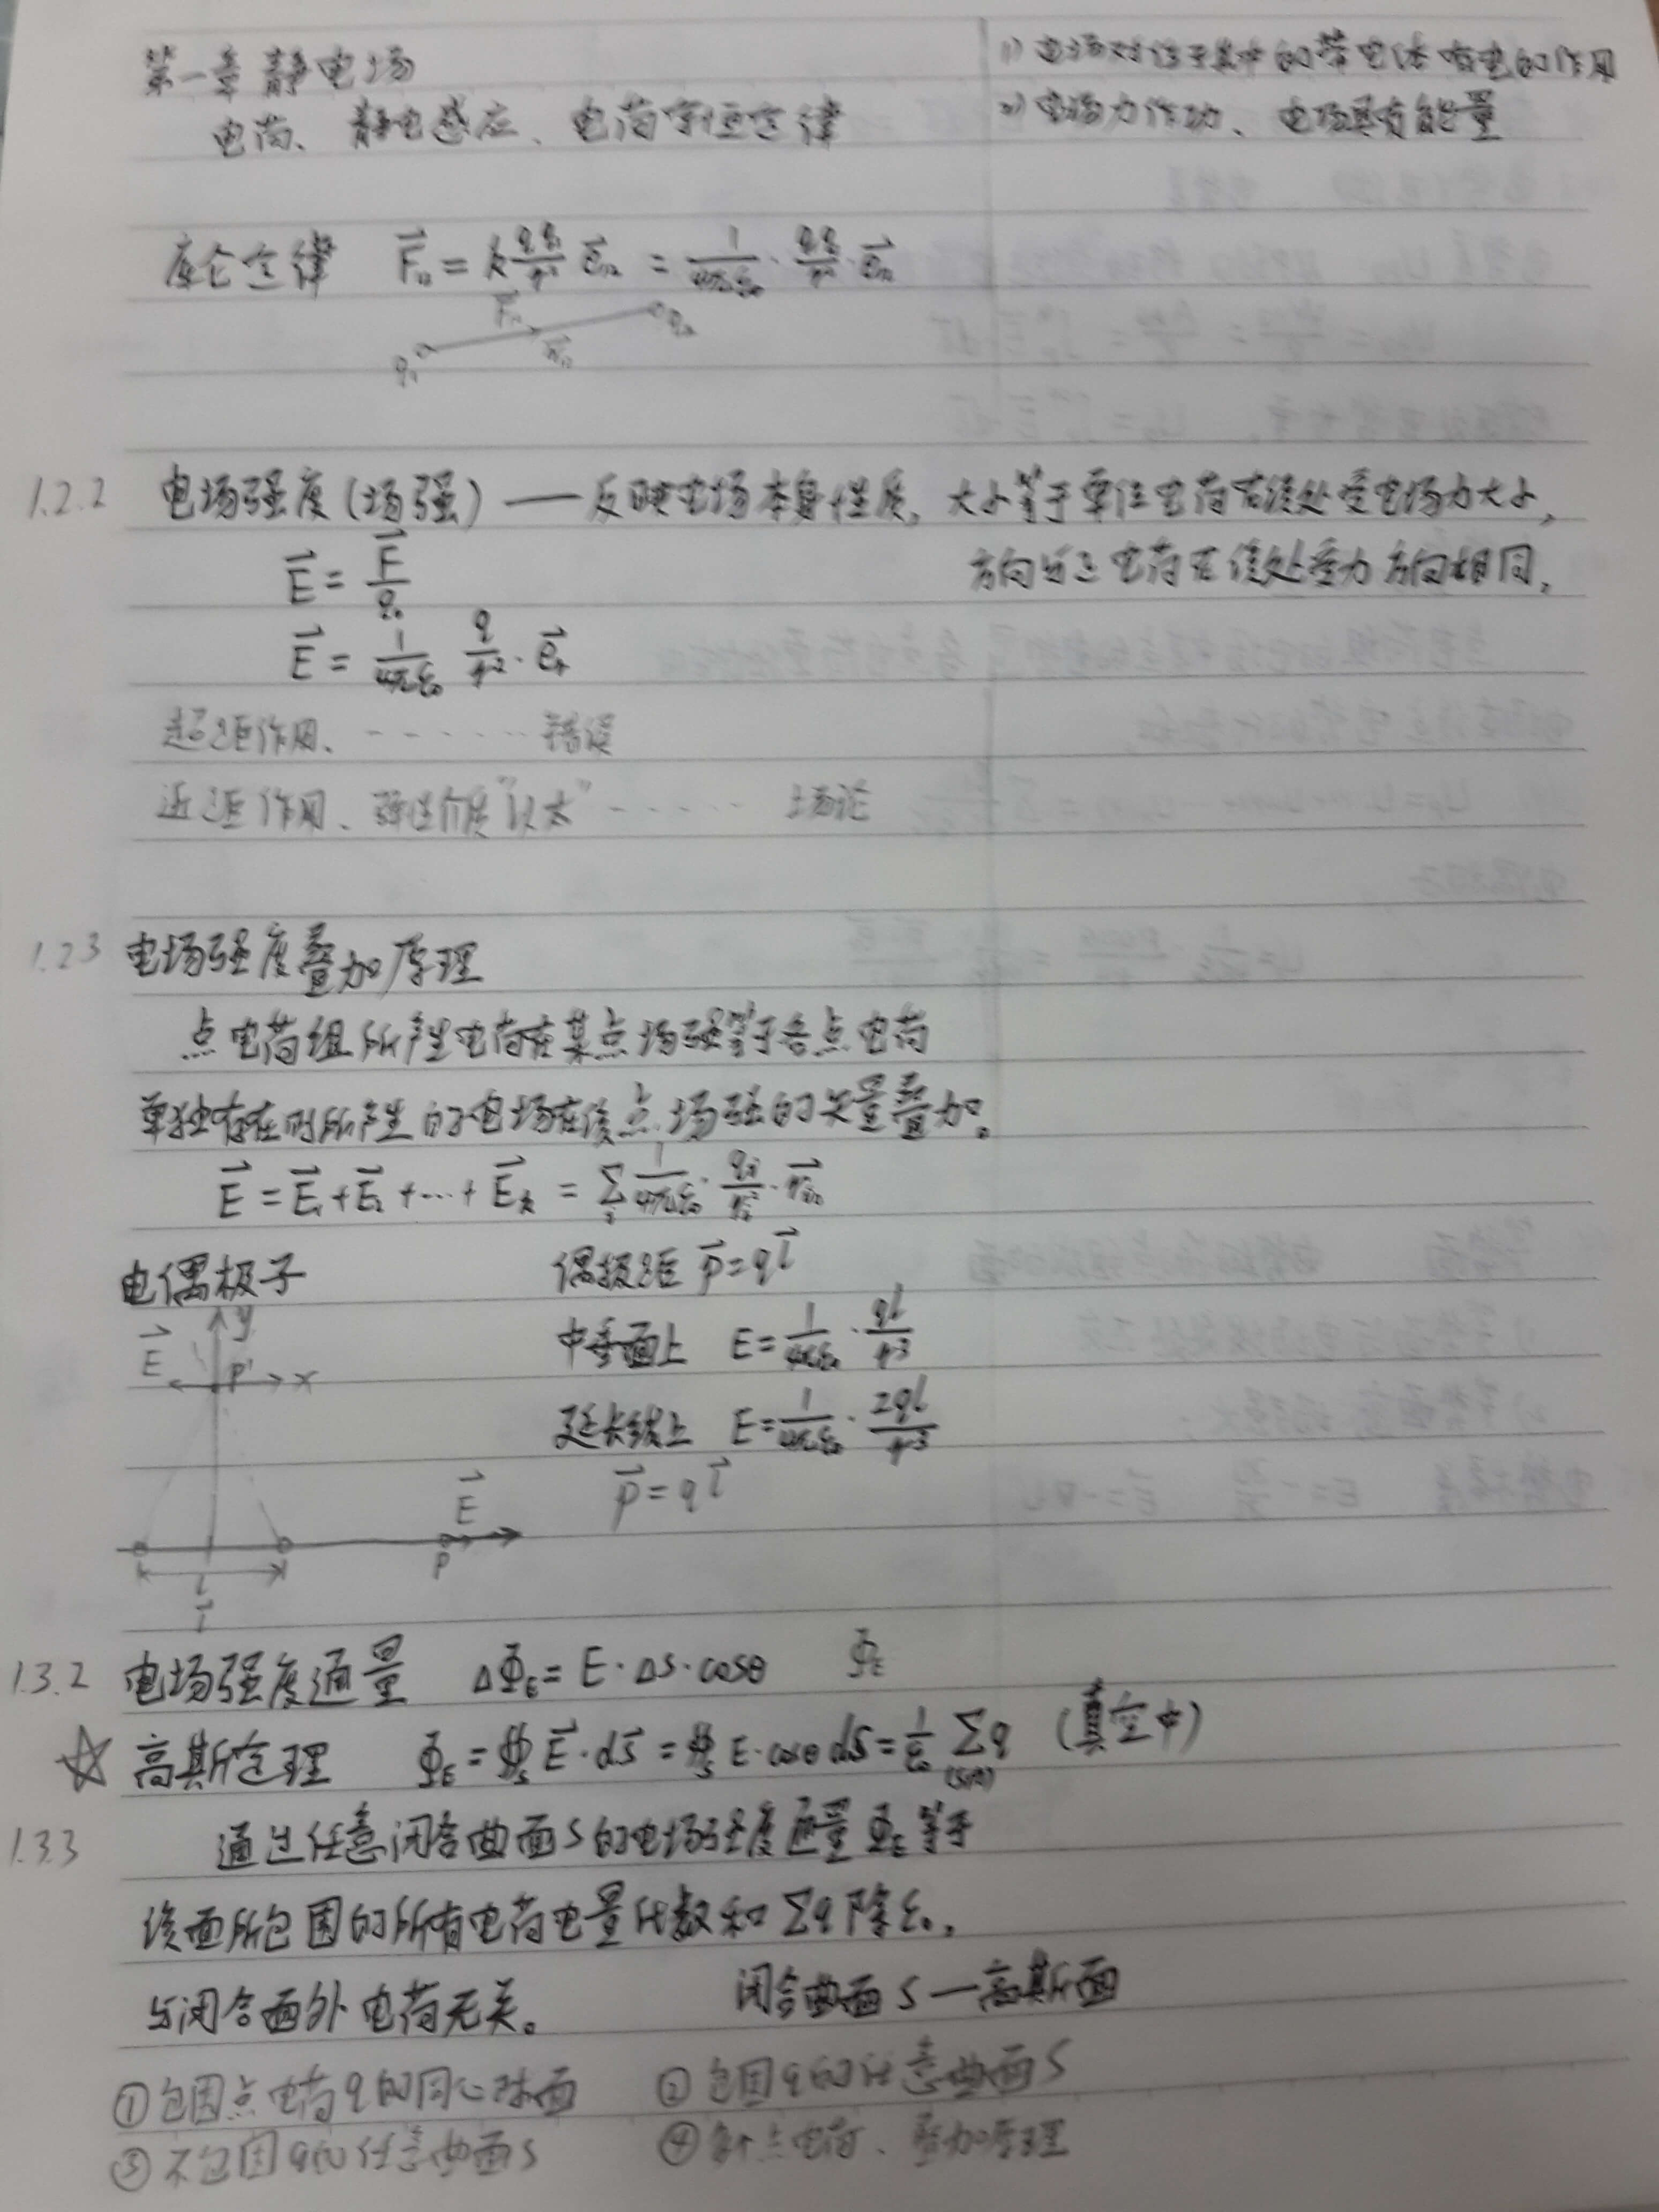 第一章 静电场
电荷、静电感应、电荷守恒定律
1) 电场对位于其中的带电体有电的作用
2) 电场力作功、电场具有能量
库仑定律 F⃗₁₂ = k q₁q₂/r² e⃗₁₂ = 1/4πε₀ · q₁q₂/r² · e⃗₁₂
F⃗₁₂
q₁ q₂
1.2.2 电场强度(场强) —— 反映电场本身性质, 大小等于单位电荷在该处受电场力大小,
方向与正电荷在该处受力方向相同。
E⃗ = F⃗/q₀
E⃗ = 1/4πε₀ q/r² · e⃗ᵣ
超距作用、······· 错误
近距作用、弹性介质“以太” ······ 场论
1.2.3 电场强度叠加原理
点电荷组所产生电荷在某点场强等于各点电荷
单独存在时所产生的电场在该点场强的矢量叠加。
E⃗ = E⃗₁ + E⃗₂ + ··· + E⃗ₖ = Σᵢ 1/4πε₀ · qᵢ/rᵢ² · r⃗ᵢ₀
电偶极子 偶极距 p⃗ = ql⃗
中垂面上 E = 1/4πε₀ · ql/r³
延长线上 E = 1/4πε₀ · 2ql/r³
p⃗ = ql⃗
y
E⃗ P' x
E⃗
P
l
l⃗
1.3.2 电场强度通量 ΔΦ_E = E·ΔS·cosθ Φ_E
☆ 高斯定理 Φ_E = ∯ₛ E⃗·dS⃗ = ∯ₛ E·cosθ dS = 1/ε₀ Σq (S内) (真空中)
1.3.3 通过任意闭合曲面S的电场强度通量Φ_E等于
该面所包围的所有电荷电量代数和Σq除ε₀,
与闭合面外电荷无关。 闭合曲面S—高斯面
①包围点电荷q的同心球面 ②包围q的任意曲面S
③不包围q的任意曲面S ④多个点电荷、叠加原理